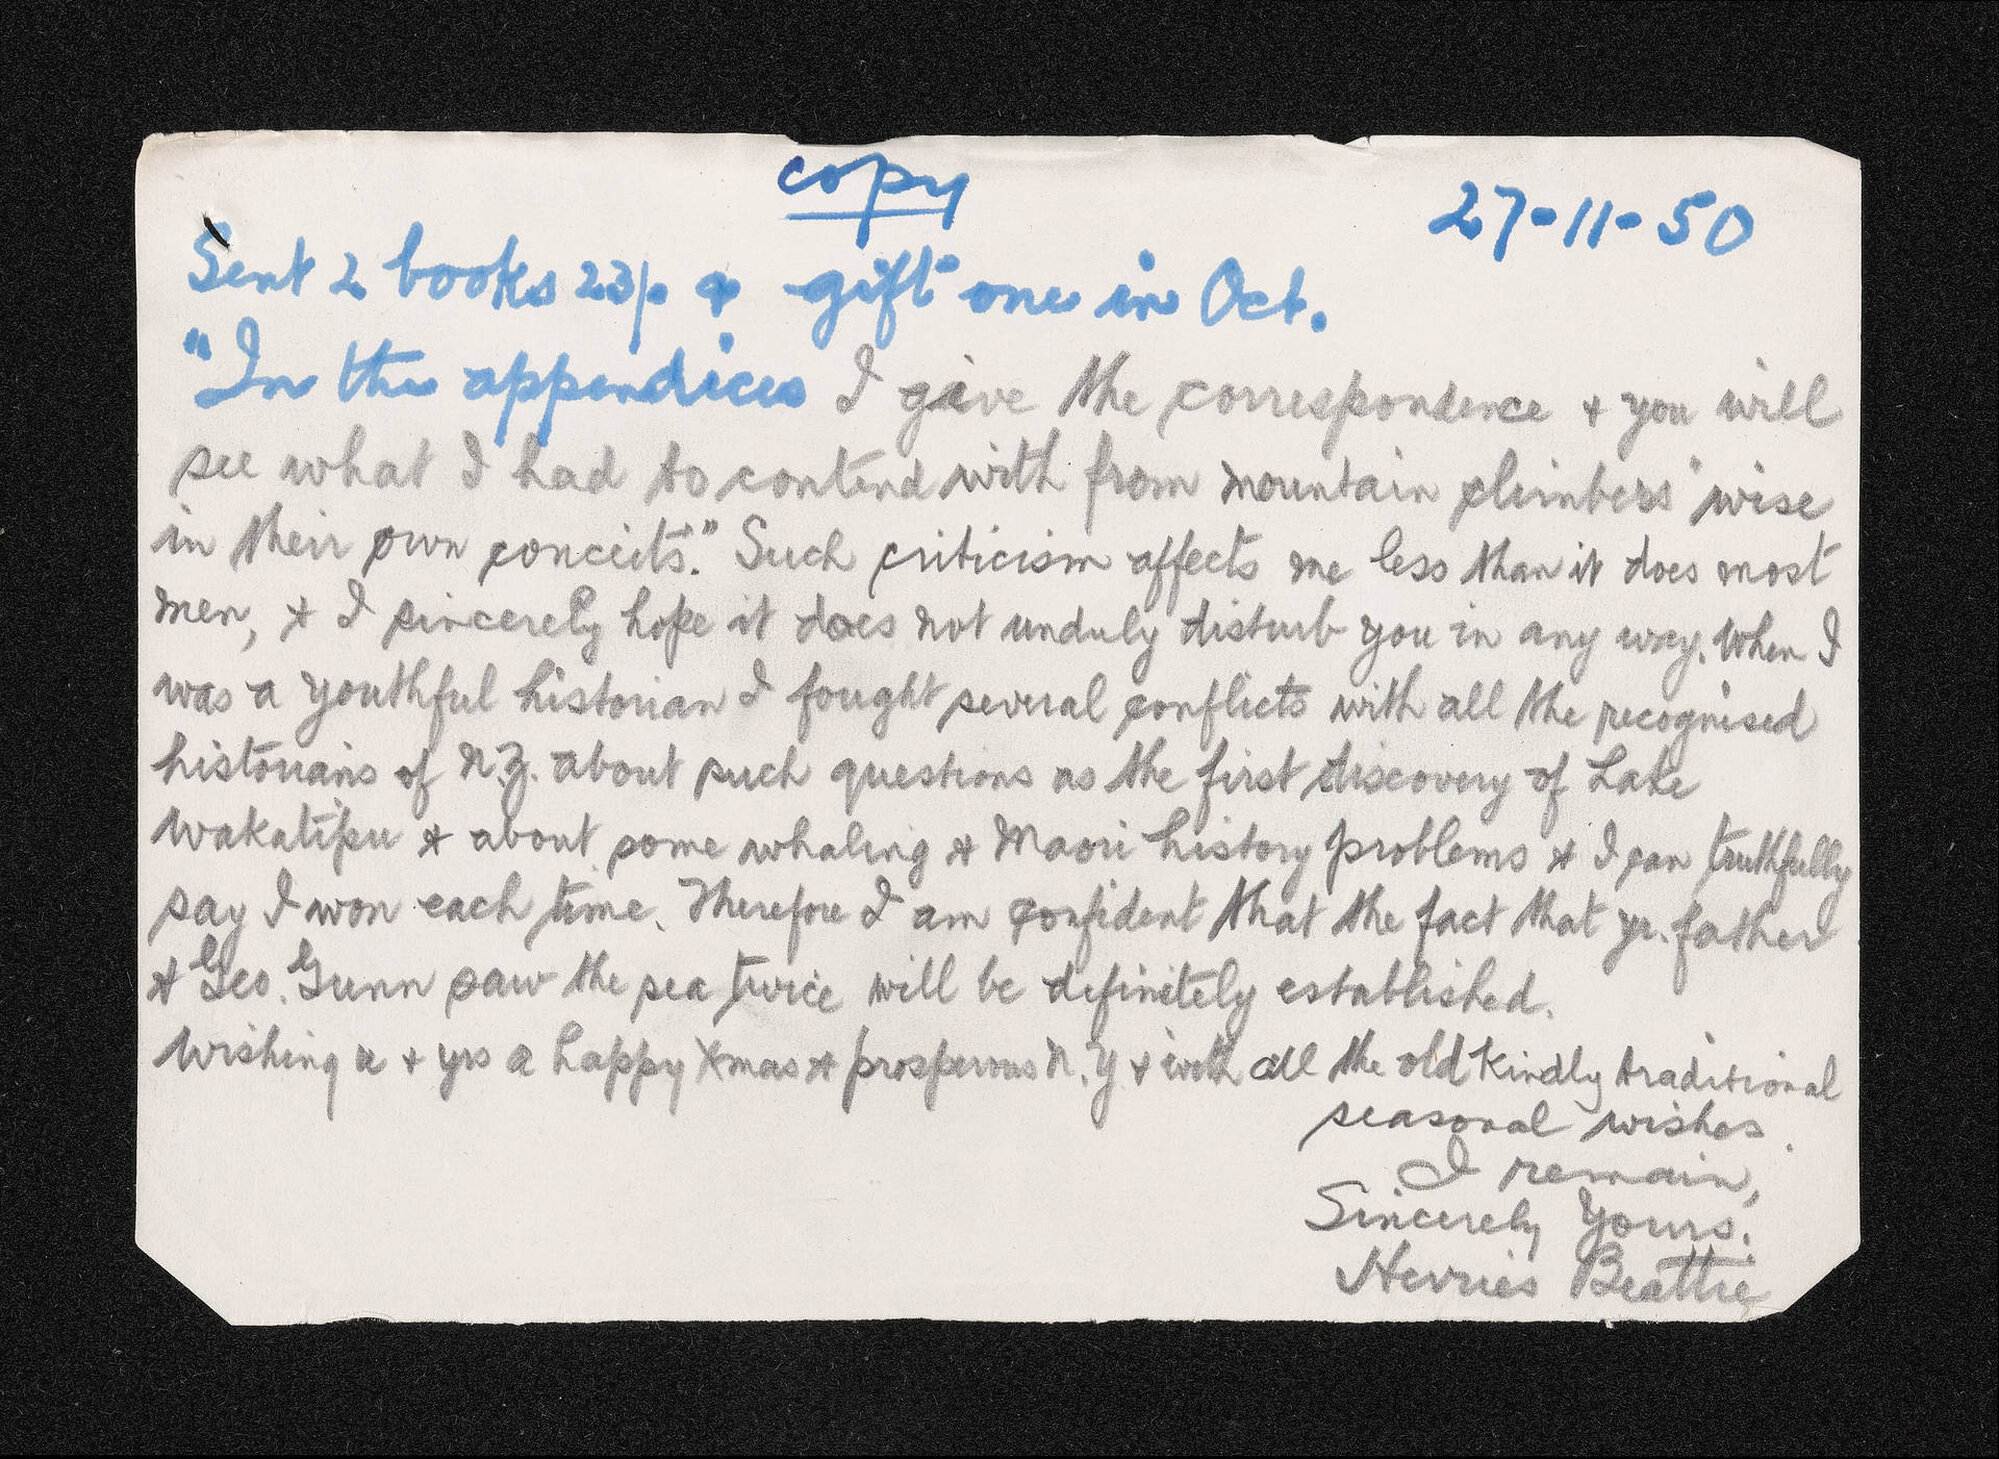 copy
27-11-50
Sent 2 books 23/- & gift one in Oct.
"In the appendices I give the correspondence & you will
see what I had to contend with from mountain climbers "wise
in their own conceits." Such criticism affects me less than it does most
men, & I sincerely hope it does not unduly disturb you in any way. When I
was a youthful historian I fought several conflicts with all the recognised
historians of N.Z. about such questions as the first discovery of Lake
Wakatipu & about some whaling & Maori history problems & I can truthfully
say I won each time. Therefore I am confident that the fact that yr. father
& Geo. Gunn saw the sea twice will be definitely established.
Wishing u & yrs a happy Xmas & prosperous N.Y & with all the old kindly traditional
seasonal wishes.
I remain,
Sincerely Yours.
Herries Beattie